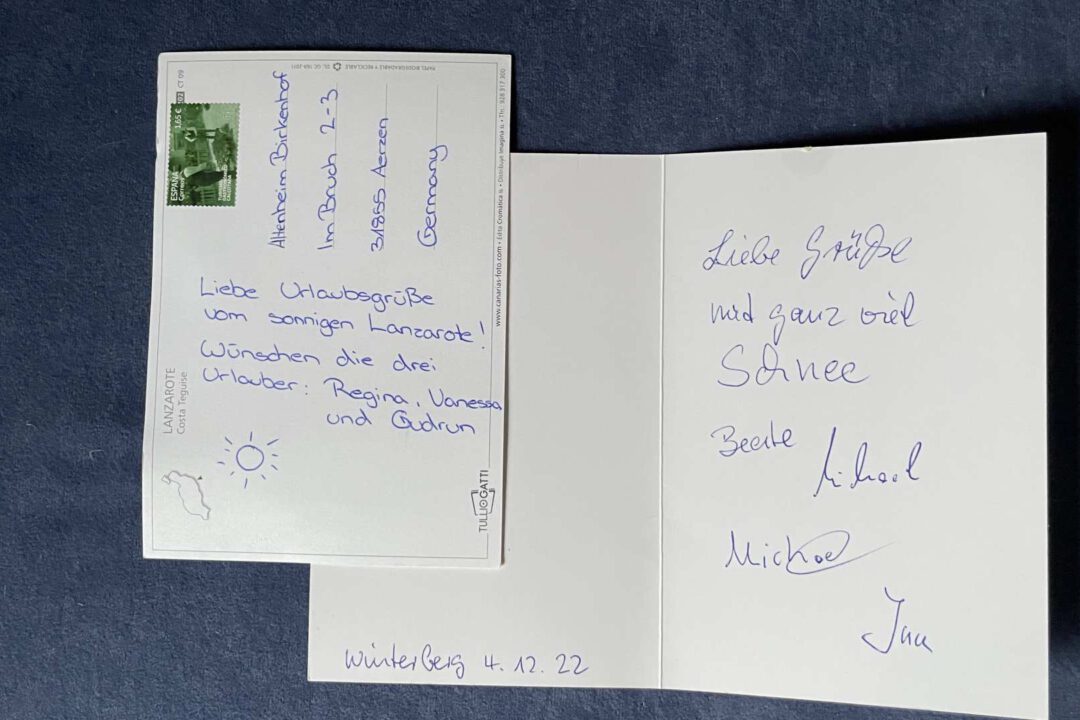 PAPEL BIODEGRADABLE Y RECICLABLE
CT 09
ESPAÑA
Correos
1,65 €
Altenheim Birkenhof
Im Bruch 2-3
31855 Aerzen
Germany
Liebe Urlaubsgrüße
vom sonnigen Lanzarote!
Wünschen die drei
Urlauber: Regina, Vanessa
und Gudrun
LANZAROTE
Costa Teguise
www.canarias-foto.com • Edita Cromática
TULLIO GATTI
Winterberg 4.12.22
Liebe Grüße
und ganz viel
Schnee
Beate
Michael
Jan